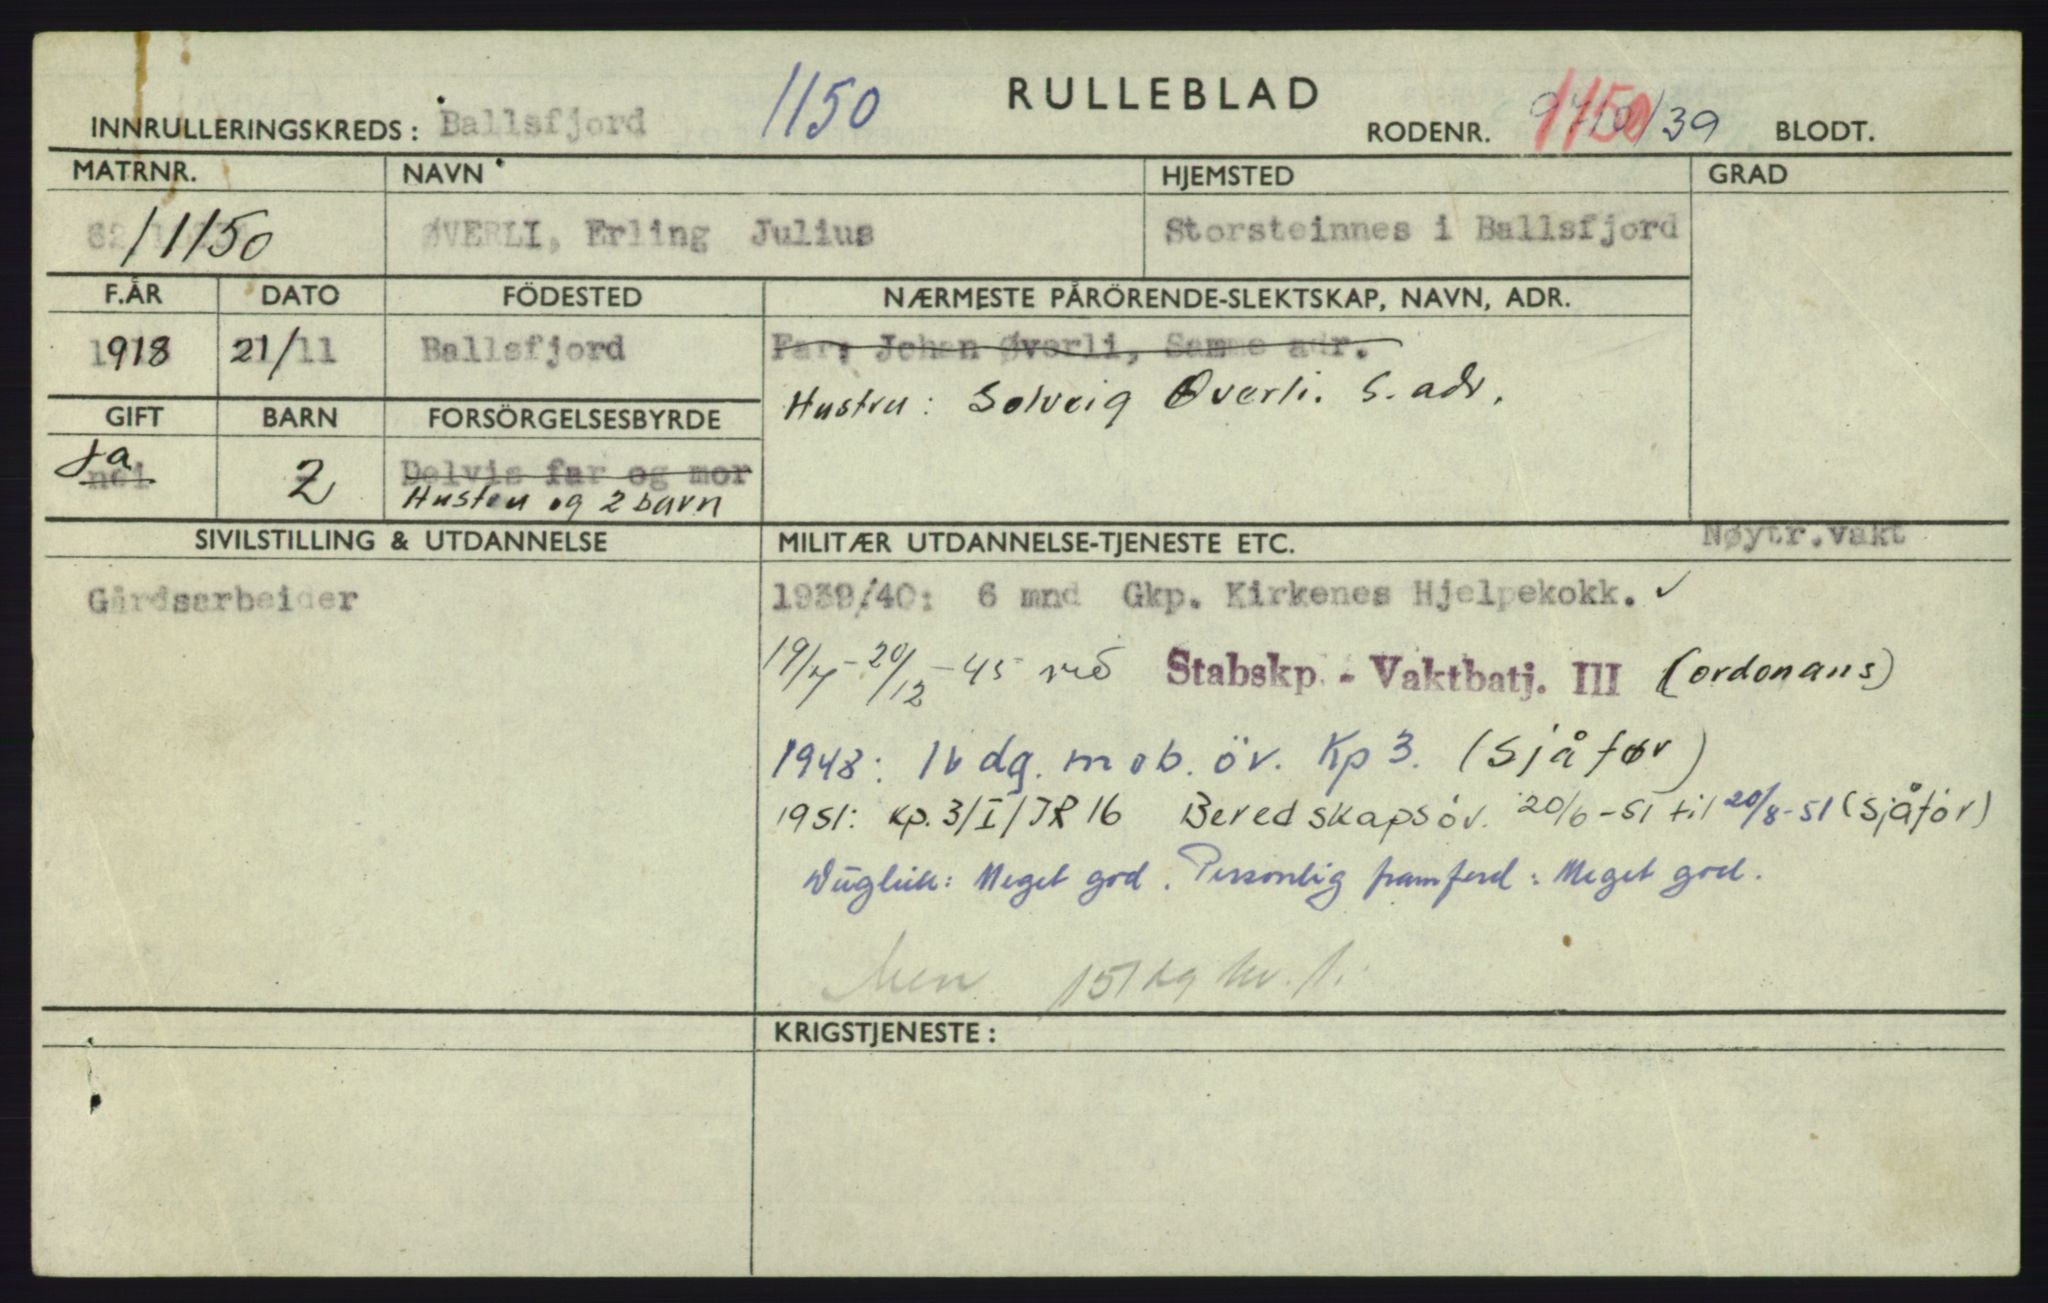 RULLEBLAD
INNRULLERINGSKREDS: Ballsfjord 1150 RODENR. 1150 /39 BLODT.
MATRNR. NAVN HJEMSTED GRAD
62 /1150 ØVERLI, Erling Julius Storsteinnes i Ballsfjord
F.ÅR DATO FÖDESTED NÆRMESTE PÅRÖRENDE-SLEKTSKAP, NAVN, ADR.
1918 21/11 Ballsfjord Far: Johan Øverli, Samme adr.
Hustru: Solveig Øverli. S. adr.
GIFT BARN FORSÖRGELSESBYRDE
Ja
nei 2 Delvis far og mor
Hustru og 2 barn
SIVILSTILLING & UTDANNELSE MILITÆR UTDANNELSE-TJENESTE ETC. Nøytr.vakt
Gårdsarbeider 1939/40: 6 mnd Gkp. Kirkenes Hjelpekokk. ✓
19/7 - 20/12 - 45 ved Stabskp. - Vaktbatj. III (ordonans)
1948: 16 dg. mob. öv. Kp 3. (sjåför)
1951: Kp. 3/I/IR 16 Beredskapsöv. 20/6-51 til 20/8-51 (sjåför)
Dugleik: Meget god. Personlig framferd: Meget god.
KRIGSTJENESTE: